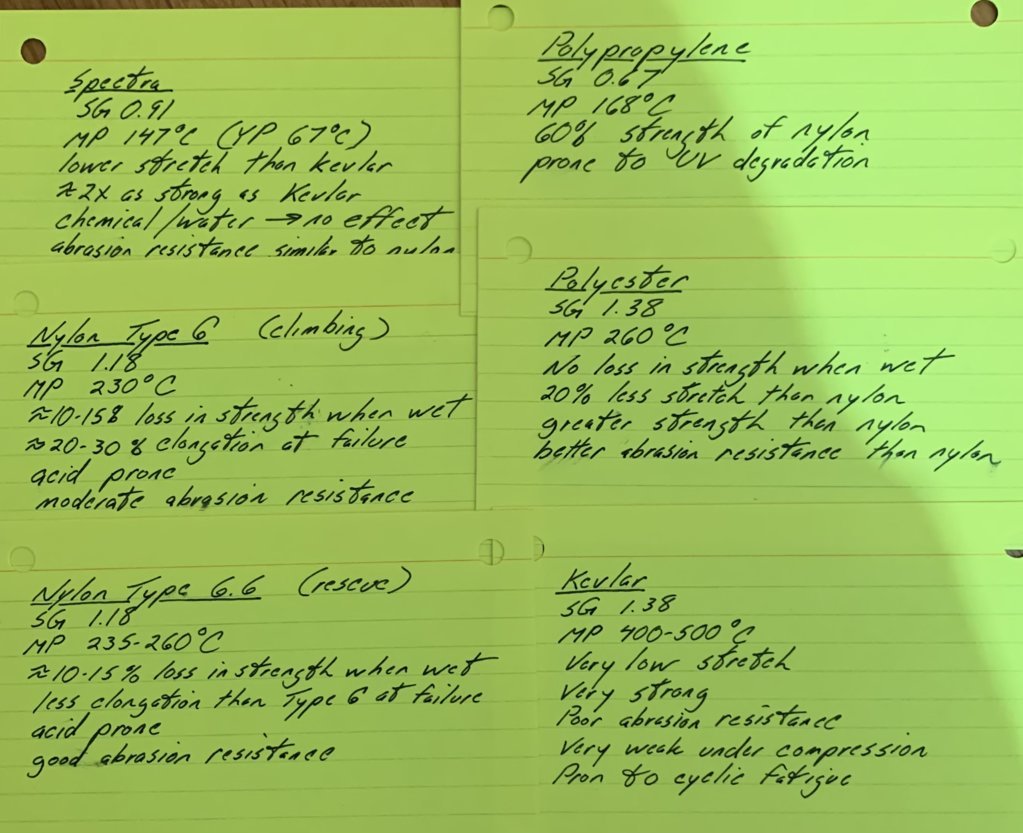 Spectra
SG 0.91
MP 147°C (YP 67°C)
lower stretch than kevlar
≈2x as strong as Kevlar
chemical/water → no effect
abrasion resistance similar to nylon
Nylon Type 6 (climbing)
SG 1.18
MP 230°C
≈10-15% loss in strength when wet
≈20-30% elongation at failure
acid prone
moderate abrasion resistance
Nylon Type 6.6 (rescue)
SG 1.18
MP 235-260°C
≈10-15% loss in strength when wet
less elongation than Type 6 at failure
acid prone
good abrasion resistance
Polypropylene
SG 0.67
MP 168°C
60% strength of nylon
prone to UV degradation
Polyester
SG 1.38
MP 260°C
No loss in strength when wet
20% less stretch than nylon
greater strength than nylon
better abrasion resistance than nylon
Kevlar
SG 1.38
MP 400-500°C
Very low stretch
Very strong
Poor abrasion resistance
Very weak under compression
Pron to cyclic fatigue